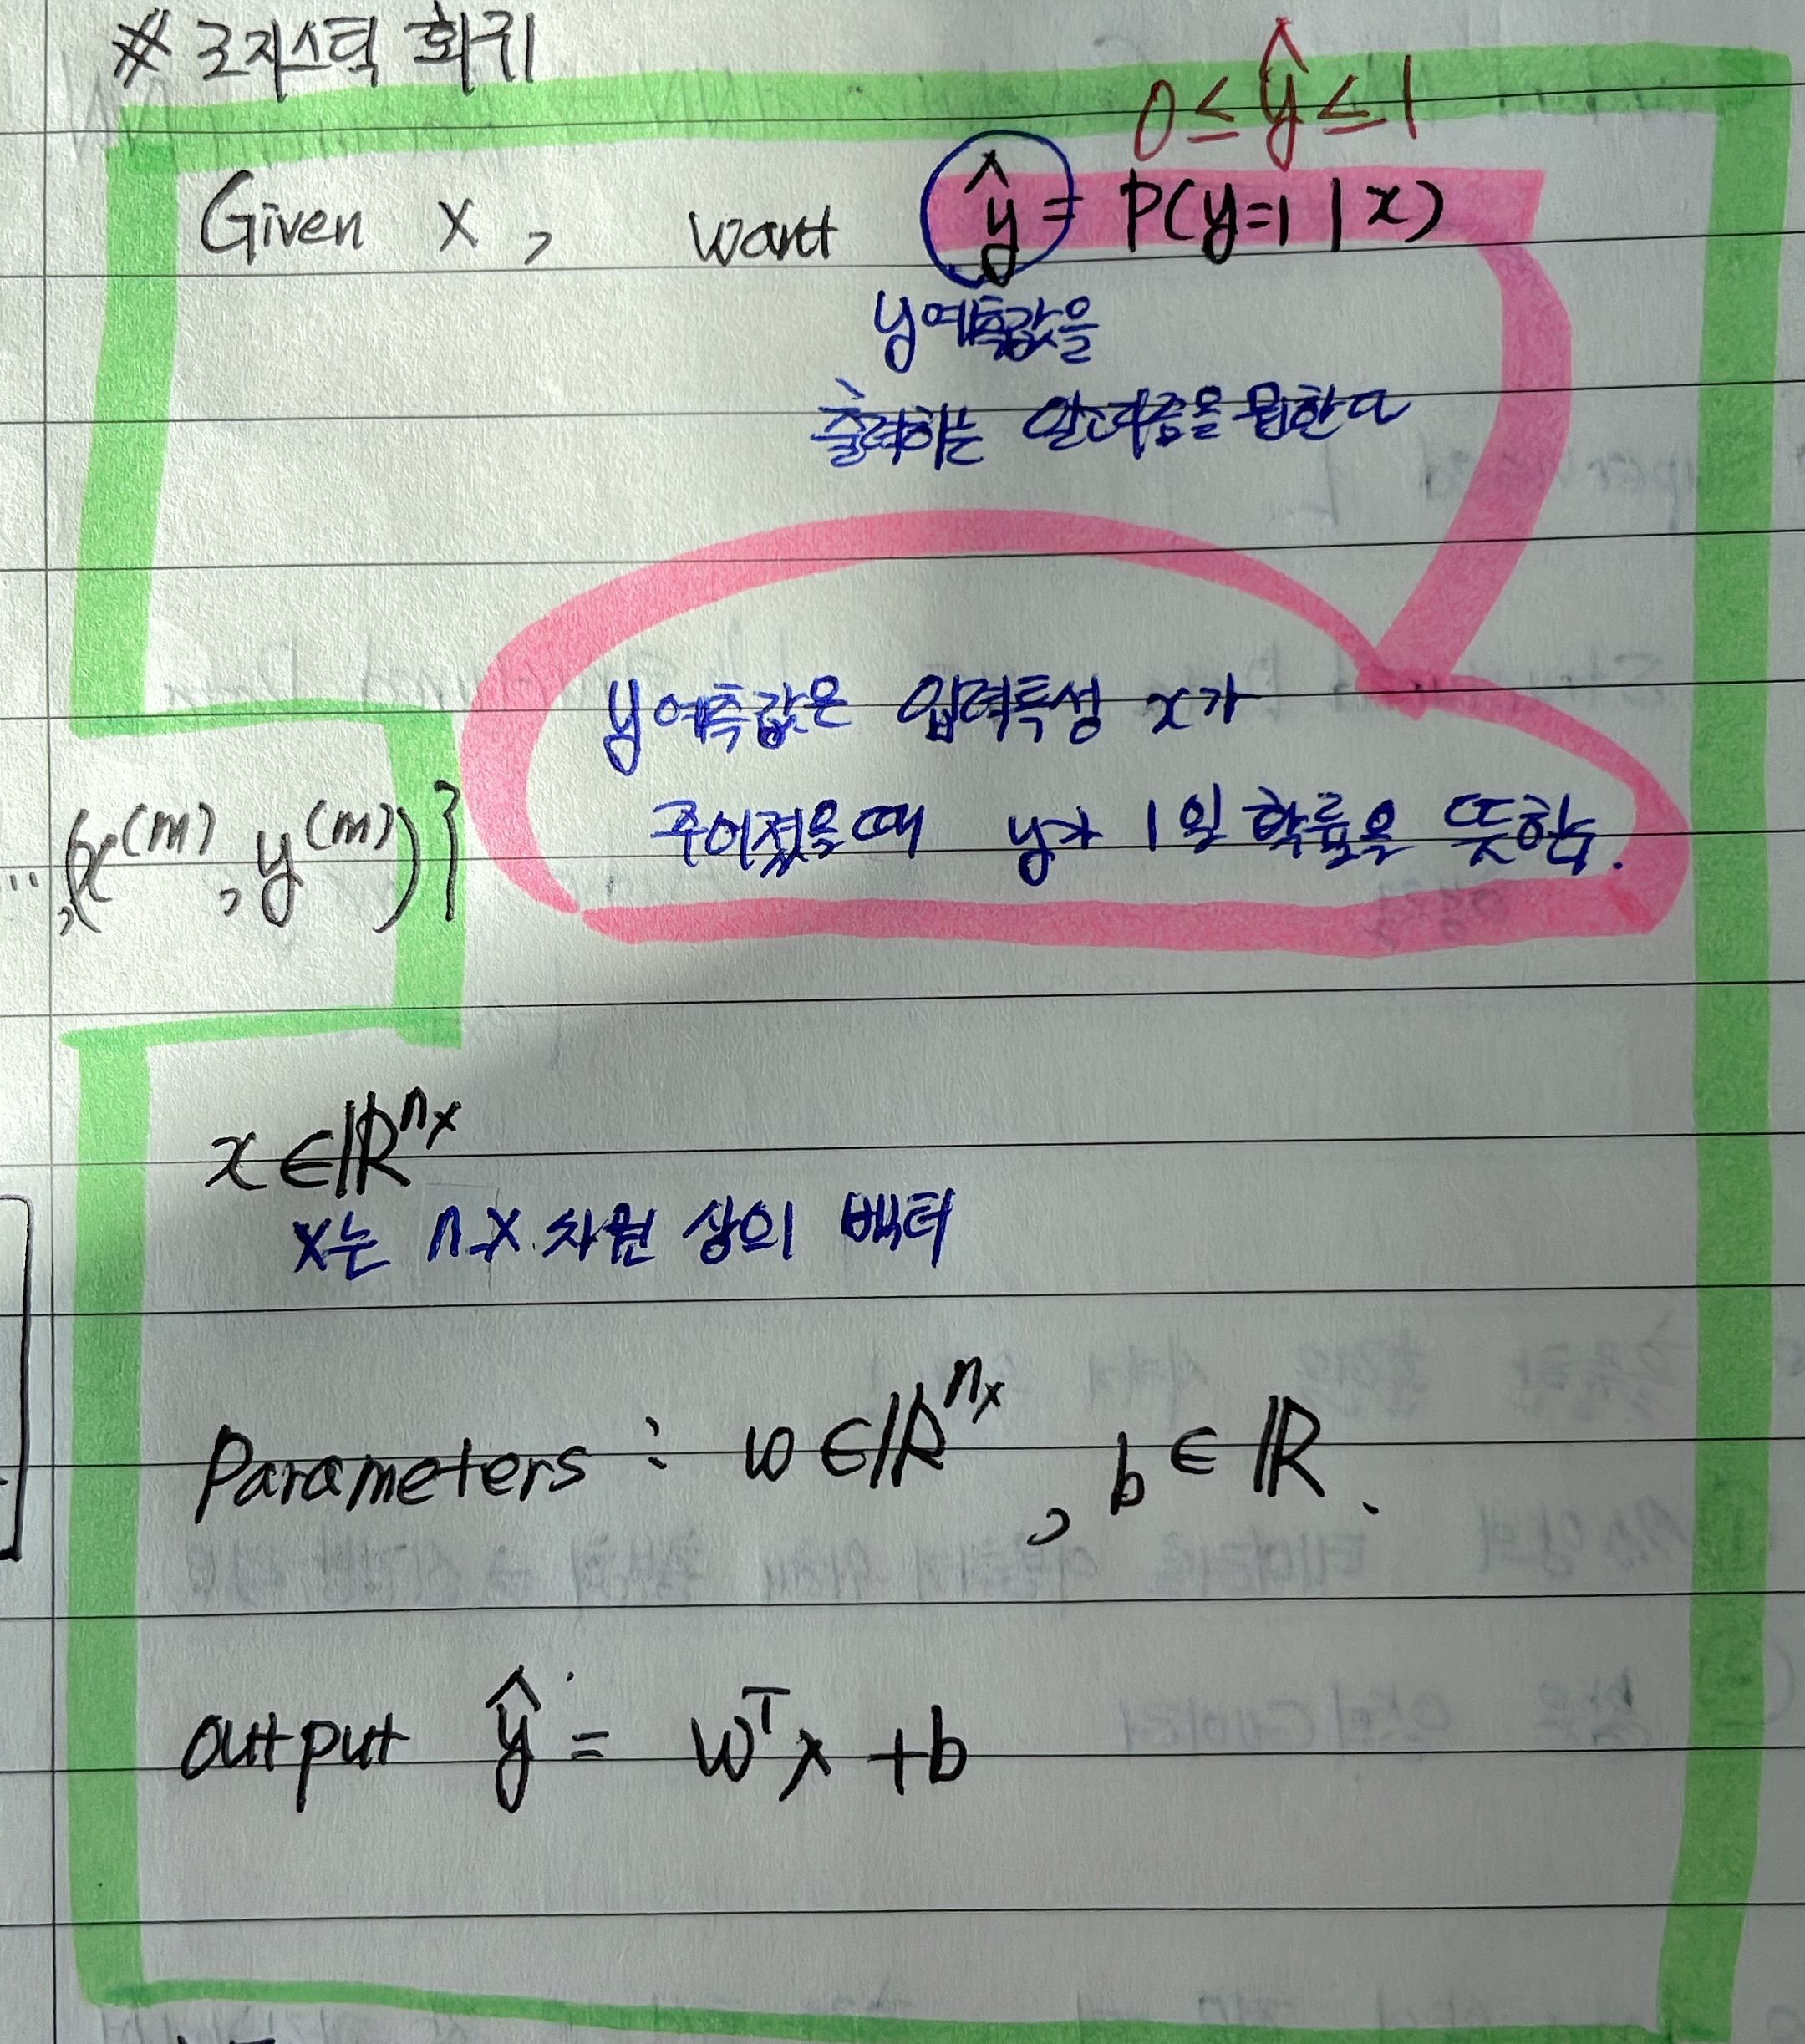 ※ 로지스틱 회귀
0 ≤ ŷ ≤ 1
Given x, want ŷ = P(y=1 | x)
y예측값을
출력하는 알고리즘을 원한다
y예측값은 입력특성 x가
주어졌을때 y가 1일 확률을 뜻함.
..., (x^(m), y^(m))}
x ∈ ℝ^nx
x는 n_x 차원 상의 벡터
Parameters : w ∈ ℝ^nx, b ∈ ℝ.
output ŷ = w^T x + b